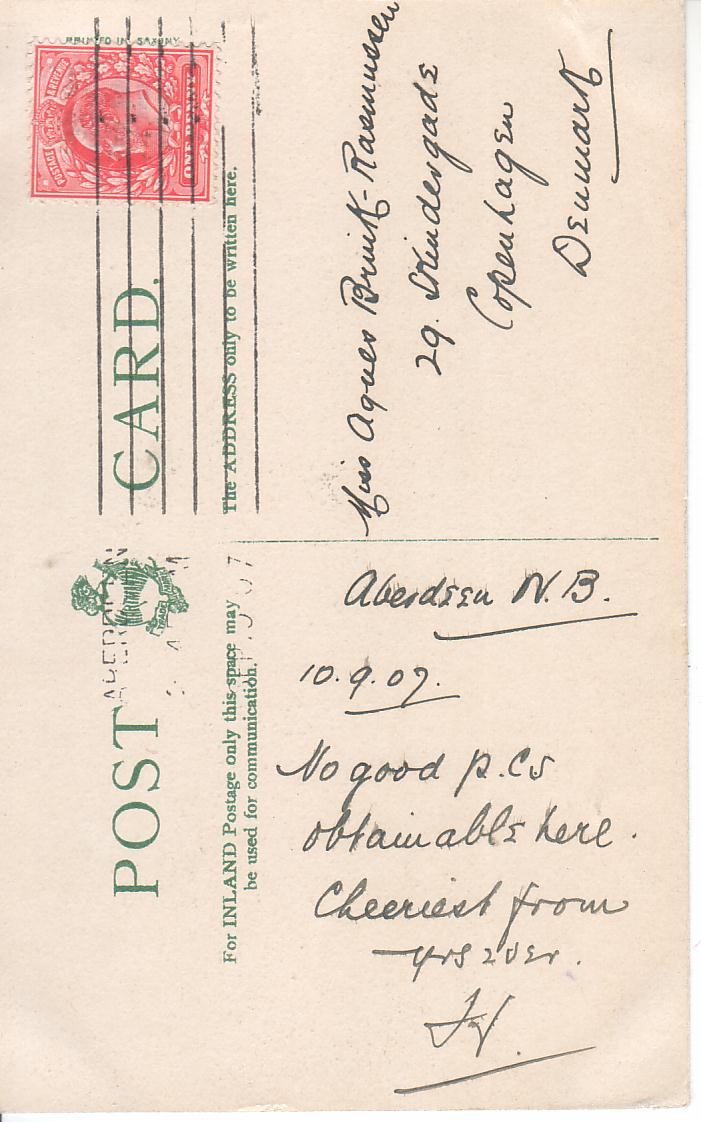 PRINTED IN SAXONY
POSTAGE
REVENUE
ONE PENNY
POST CARD.
ABERDEEN
SEP 10 07
For INLAND Postage only this space may
be used for communication.
The ADDRESS only to be written here.
Aberdeen N.B.
10.9.07.
No good p.cs
obtainable here.
Cheeriest from
yrs ever.
Miss Agnes Brink-Rasmussen
29. Skindergade
Copenhagen
Denmark